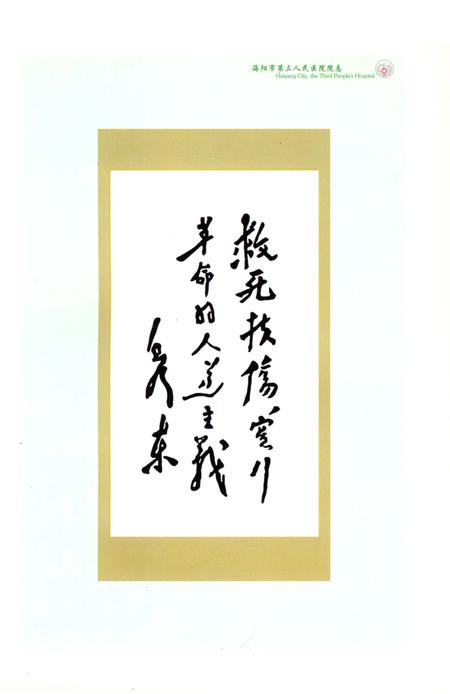 海阳市第三人民医院院志
Haiyang City, the Third People's Hospital
救死扶傷實行
革命的人道主義
毛澤東